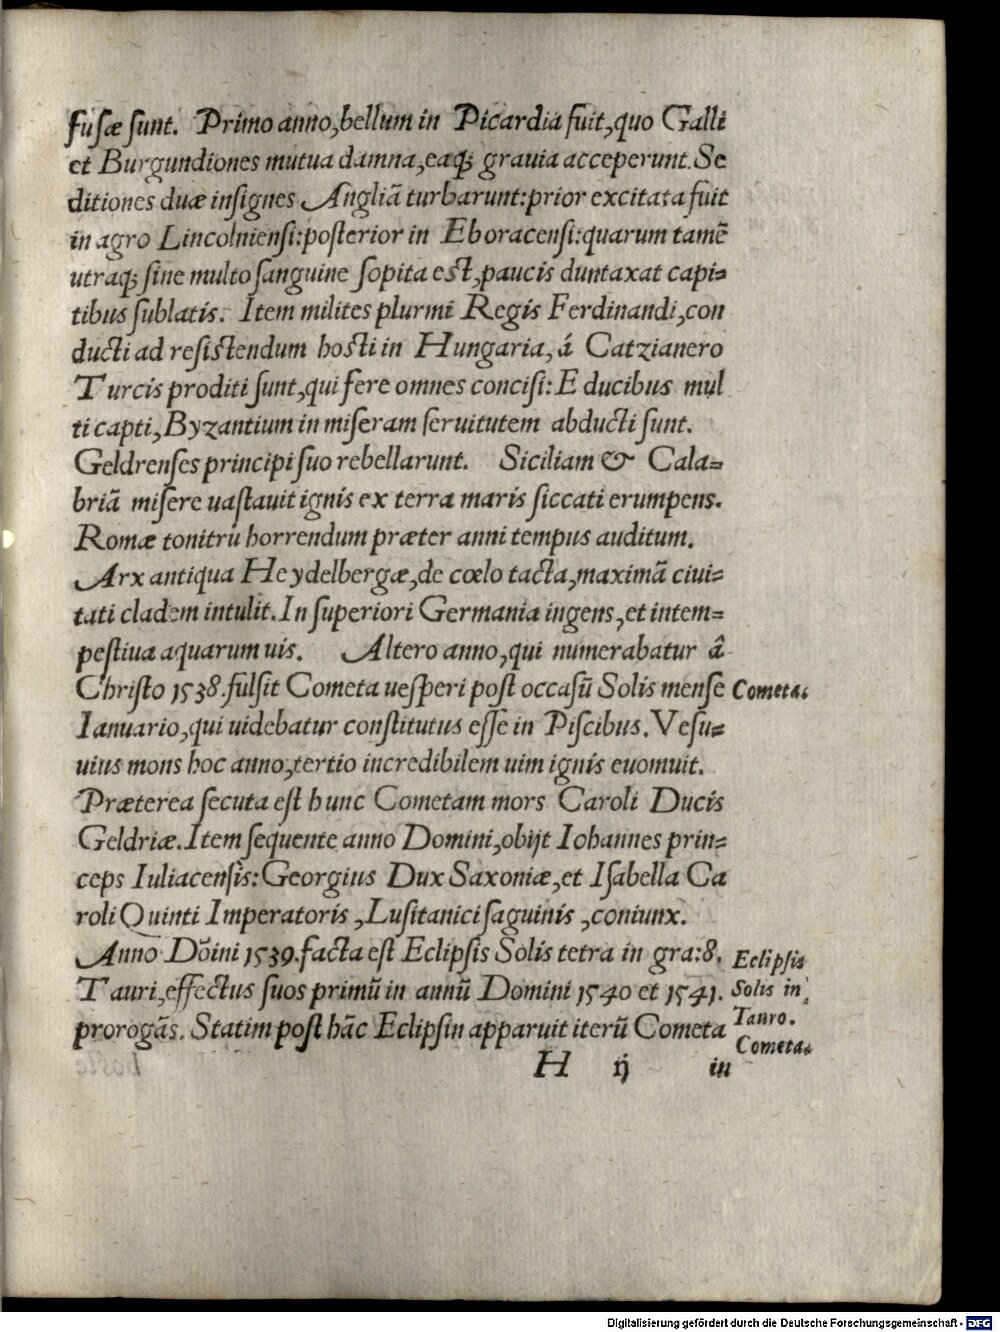 fuſæ ſunt. Primo anno, bellum in Picardia fuit, quo Galli
et Burgundiones mutua damna, eaq; grauia acceperunt. Se
ditiones duæ inſignes Angliã turbarunt: prior excitata fuit
in agro Lincolnienſi: poſterior in Eboracenſi: quarum tamẽ
utraq; ſine multo ſanguine ſopita eſt, paucis duntaxat capi=
tibus ſublatis. Item milites plurmi Regis Ferdinandi, con
ducti ad reſiſtendum hoſti in Hungaria, á Catzianero
Turcis proditi ſunt, qui fere omnes conciſi: E ducibus mul
ti capti, Byzantium in miſeram ſeruitutem abducti ſunt.
Geldrenſes principi ſuo rebellarunt. Siciliam & Cala=
briã miſere uaſtauit ignis ex terra maris ſiccati erumpens.
Romæ tonitru horrendum præter anni tempus auditum.
Arx antiqua Heydelbergæ, de cœlo tacta, maximã ciui=
tati cladem intulit. In ſuperiori Germania ingens, et intem=
peſtiua aquarum uis. Altero anno, qui numerabatur â
Chriſto 1538. fulſit Cometa ueſperi poſt occaſũ Solis menſe
Cometa.
Ianuario, qui uidebatur conſtitutus eſſe in Piſcibus. Veſu=
uius mons hoc anno, tertio incredibilem uim ignis euomuit.
Præterea ſecuta eſt hunc Cometam mors Caroli Ducis
Geldriæ. Item ſequente anno Domini, obijt Iohannes prin=
ceps Iuliacenſis: Georgius Dux Saxoniæ, et Iſabella Ca
roli Quinti Imperatoris, Luſitanici ſaguinis, coniunx.
Anno Dõini 1539. facta eſt Eclipſis Solis tetra in gra: 8.
Eclipſis
Tauri, effectus ſuos primũ in annũ Domini 1540 et 1541.
Solis in
prorogãs. Statim poſt hãc Eclipſin apparuit iterũ Cometa
Tauro.
Cometa.
H ij in
Digitalisierung gefördert durch die Deutsche Forschungsgemeinschaft - DFG